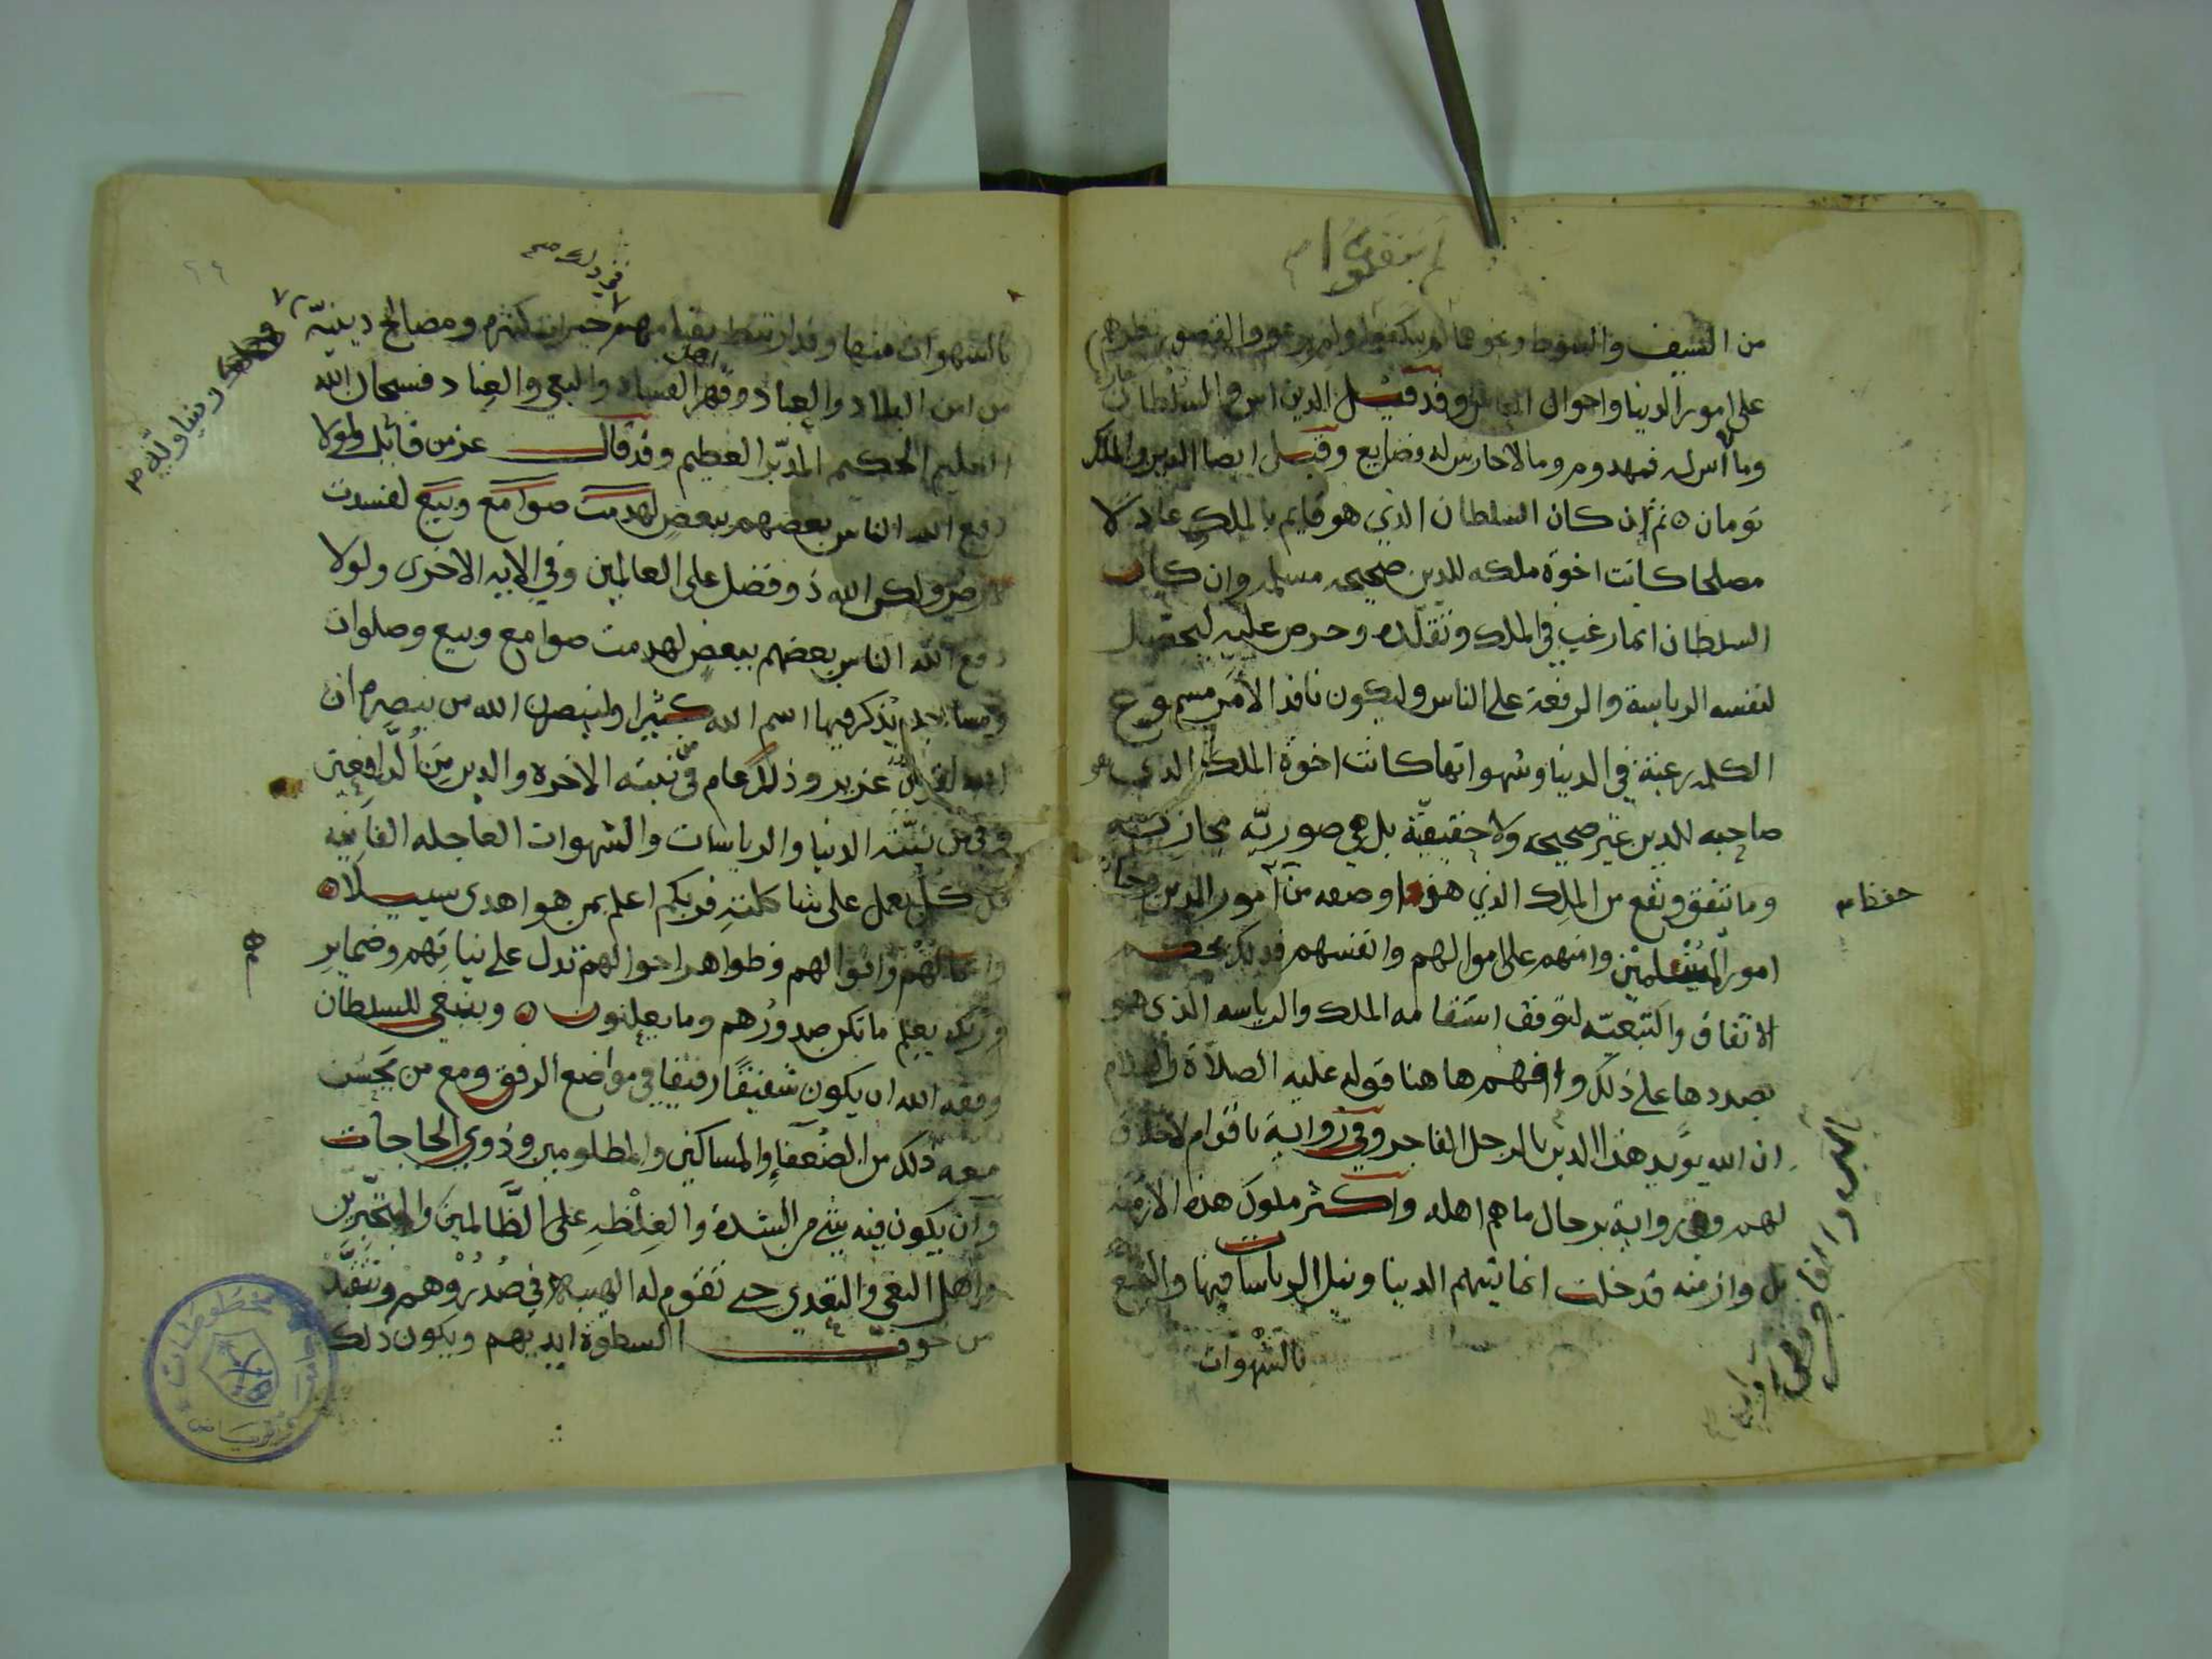 لم يتفقوا
من السيف والسوط ونحوهما لم يكفوا ولم يرعووا لقصور نظرهم
على امور الدنيا واحوال الناس وقد قيل الدين اس والسلطان حارس
وما لا اس له فمهدوم وما لا حارس له فضايع وقيل ايضا الدين والملك
تومان ثم ان كان السلطان الذي هو قايم بالملك عادلا
مصلحا كانت اخوة ملكه للدين صحيحه مسلمه وان كان
السلطان انما رغب في الملك وتقلده وحرص عليه ليحصل
لنفسه الرياسة والرفعة على الناس وليكون نافذ الأمر مسموع
الكلمه رغبة في الدنيا وشهواتها كانت اخوة الملك الذي هو
صاحبه للدين غير صحيحه ولا حقيقيّة بل هي صوريّه مجازيّه
وما يتفق ويقع من الملك الذي هذا وصفه من امور الدين
حفظ
امور المسلمين وامنهم على اموالهم وانفسهم فذلك بحكم
الاتفاق والتبعيّه لتوقف استقامه الملك والرياسه الذي هو
بصددها على ذلك وافهم هاهنا قوله عليه الصلاة والسلام
ان الله يويد هذا الدين بالرجل الفاجر وفي رواية باقوام لا خلاق
لهم وفي رواية برجال ما هم اهله واكثر ملوك هذه الازمنه
بل وازمنه قد خلت انما نيتهم الدنيا ونيل الرياسات فيها والتمتع
بالشهوات
بالشهوات منها وقد ارتبط بقيامهم خيرات كثيره ومصالح دينيّه
في ذلك صح
ودنياويّه
من امن البلاد والعباد وقهر اهل الفساد والبغي والعناد فسبحان الله
العليم الحكيم المدبّر العظيم وقد قال عز من قائل ولولا
دفع الله الناس بعضهم ببعض لهدمت صوامع وبيع لفسدت
الارض ولكن الله ذو فضل على العالمين وفي الايه الاخرى ولولا
دفع الله الناس بعضهم ببعض لهدمت صوامع وبيع وصلوات
ومساجد يذكر فيها اسم الله كثيرا ولينصرن الله من ينصره ان
الله لقوي عزيز وذلك عام في من نيته الاخره والدين من الدافعين
وفي من نيّته الدنيا والرياسات والشهوات العاجله الفانيه
قل كل يعمل على شاكلته فربكم اعلم بمن هو اهدى سبيلا
واعمالهم واقوالهم وظواهر احوالهم تدل على نياتهم وضماير
وربك يعلم ما تكن صدورهم وما يعلنون وينبغي للسلطان
وفقه الله ان يكون شفيقا رفيقا في مواضع الرفق ومع من يحسن
معه ذلك من الضعفاء والمساكين والمظلومين وذوي الحاجات
وان يكون فيه شي من الشدة والغلظه على الظالمين والمتجبّرين
واهل البغي والتعدي حتى تقوم له الهيبة في صدورهم وتتقيّد
من خوف السطوة ايديهم ويكون ذلك
مخطوطات
جامعة الرياض